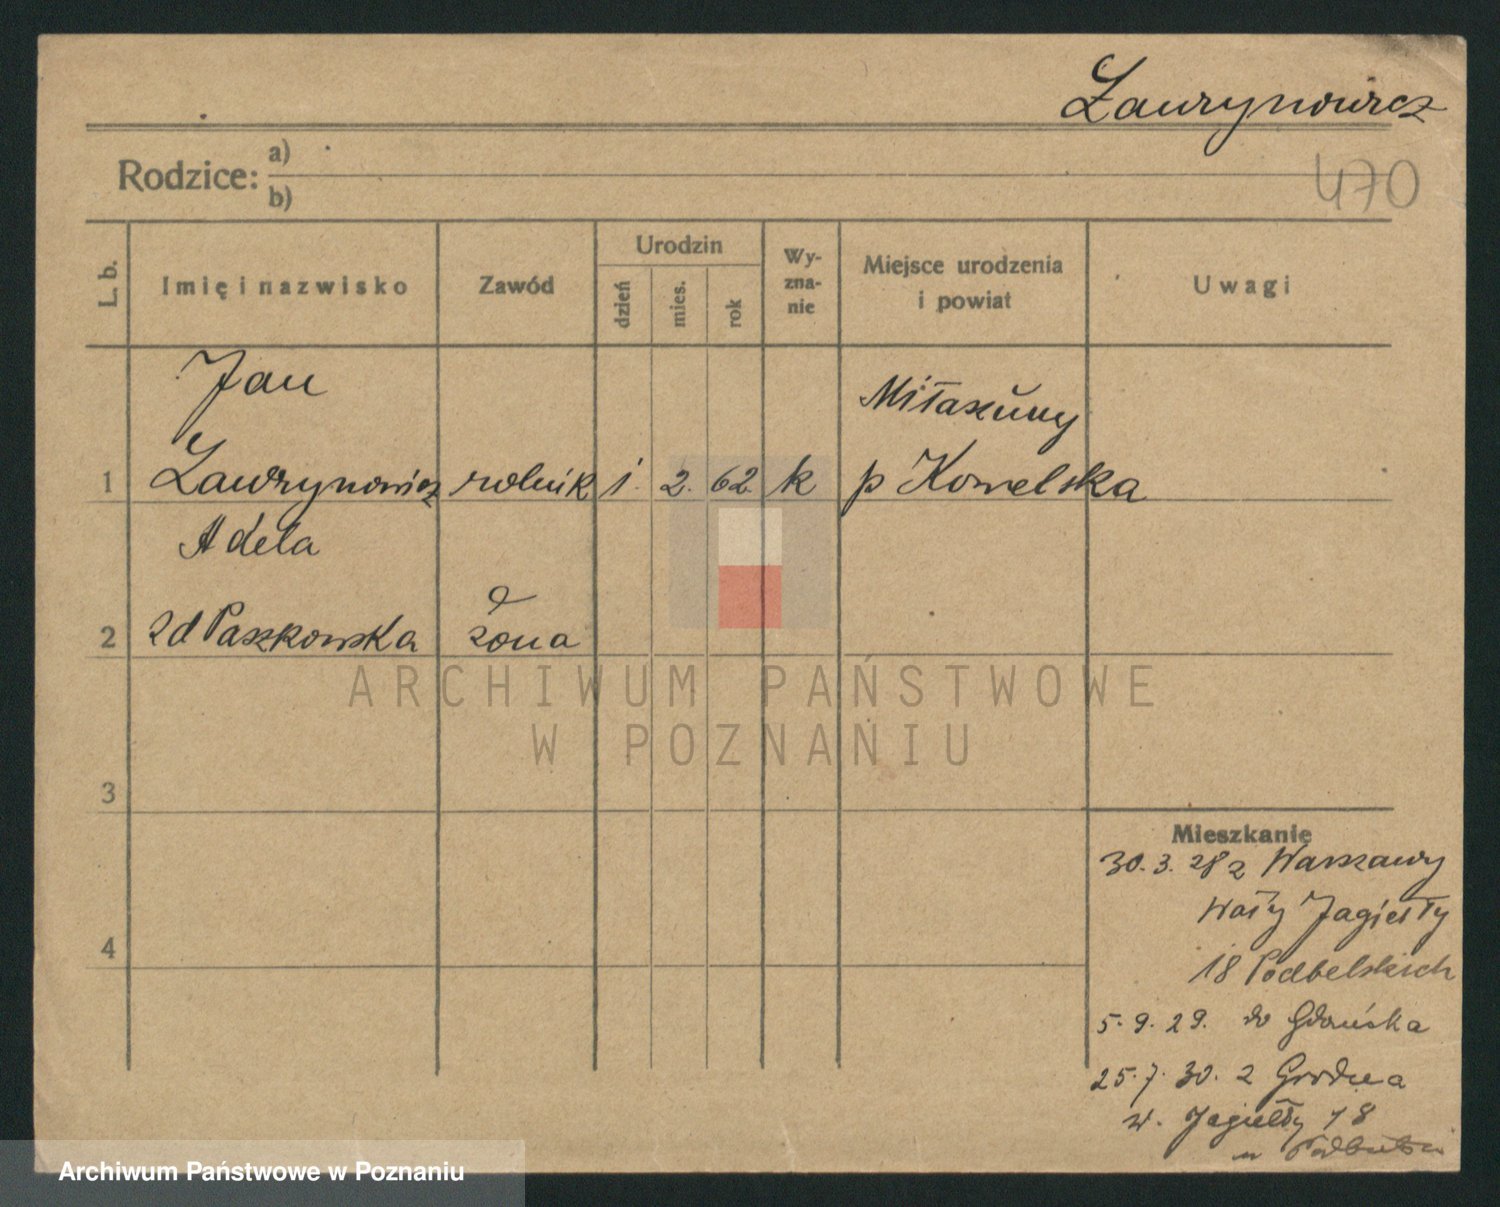 Ławrynowicz
Rodzice: a)
b)
470
L. b.
Imię i nazwisko
Zawód
Urodzin
dzień
mies.
rok
Wy-
zna-
nie
Miejsce urodzenia
i powiat
Uwagi
Jan
Miłaszuny
1 Ławrynowicz rolnik 1. 2. 62 k p Kowelska
Adela
2 zd Paszkowska żona
ARCHIWUM PAŃSTWOWE
W POZNANIU
3
Mieszkanie
30.3.28 z Warszawy
Wały Jagiełły
4
18 Podbelskich
5.9.29. do Gdańska
25.7.30. z Grodna
w. Jagiełły 18
Archiwum Państwowe w Poznaniu